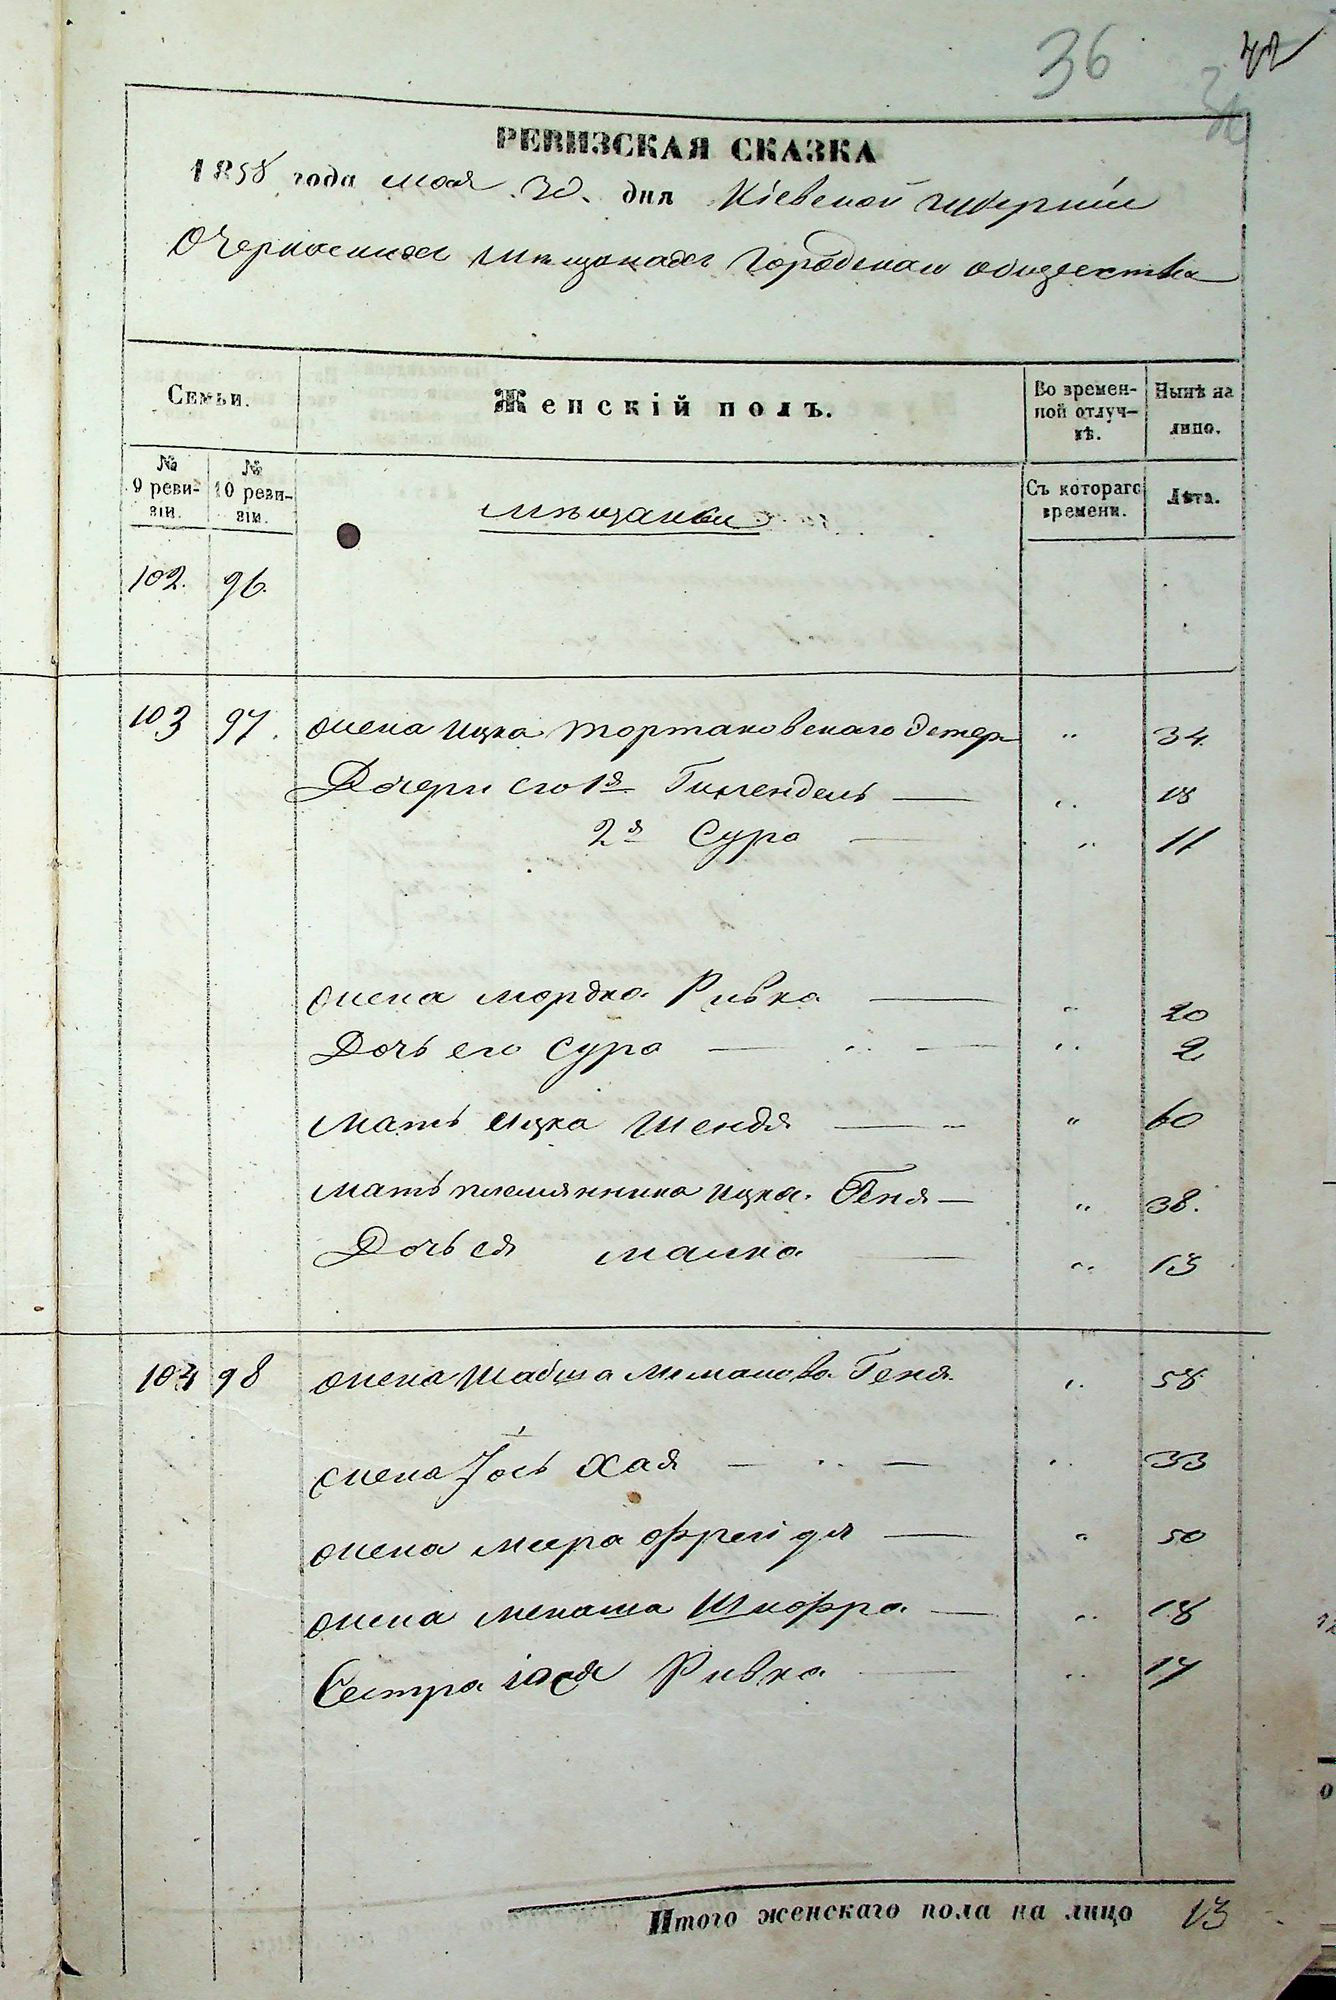 36 42
36
РЕВИЗСКАЯ СКАЗКА
1858 года мая 30 дня Кіевской губерніи
О Черкасских мещанах городскаго общества
Семьи.
Женскій полъ.
Во времен-
ной отлуч-
кѣ.
Нынѣ на
лицо.
№
9 реви-
зіи.
№
10 реви-
зіи.
мѣщанки
Съ котораго
времени.
Лѣта.
102. 96.
103 97. жена Ицка Тортаковскаго Эстер " 34.
Дочери его 1я — " 18
2я Сура — " 11
жена Мордка Ривка — " 20
Дочь его Сура — " — " 2
мать Ицка Шендя — " " 60
мать племянника Ицка Геня — " 38.
Дочь ея малка — " 13
104 98 жена Шабша Геня " 58
жена Іось Хая — " — " 33
жена меера Фрейдя — " 50
жена менаша Шифра — " 18
Сестра іося Ривка — " 17
Итого женскаго пола на лицо 13